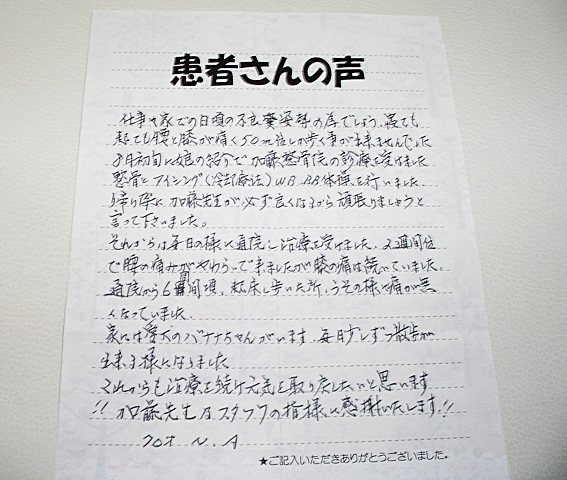 患者さんの声
仕事や家での日頃の不良姿勢の為でしょう、寝ても
起きても腰と膝が痛く50m位しか歩く事が出来ませんでした
8月初旬に娘の紹介で加藤整骨院の診療を受けました
整骨にアイシング(冷却療法)WB、BB体操を行いました
帰り際に加藤先生が必ず良くなるから頑張りましょうと
言って下さいました。
それからは毎日の様に通院し治療を受けました、2週間位
で腰の痛みがやわらいで来ましたが膝の痛は続いていました。
通院から6週間頃、起床し歩いた所、うその様に痛が無
くなっていました。
家には愛犬のバナナちゃんがいます、毎日少しずつ散歩が
出来る様になりました
これからも治療を続け元気を取り戻したいと思います
!!加藤先生及スタッフの皆様に感謝いたします!!
N.A
★ご記入いただきありがとうございました。